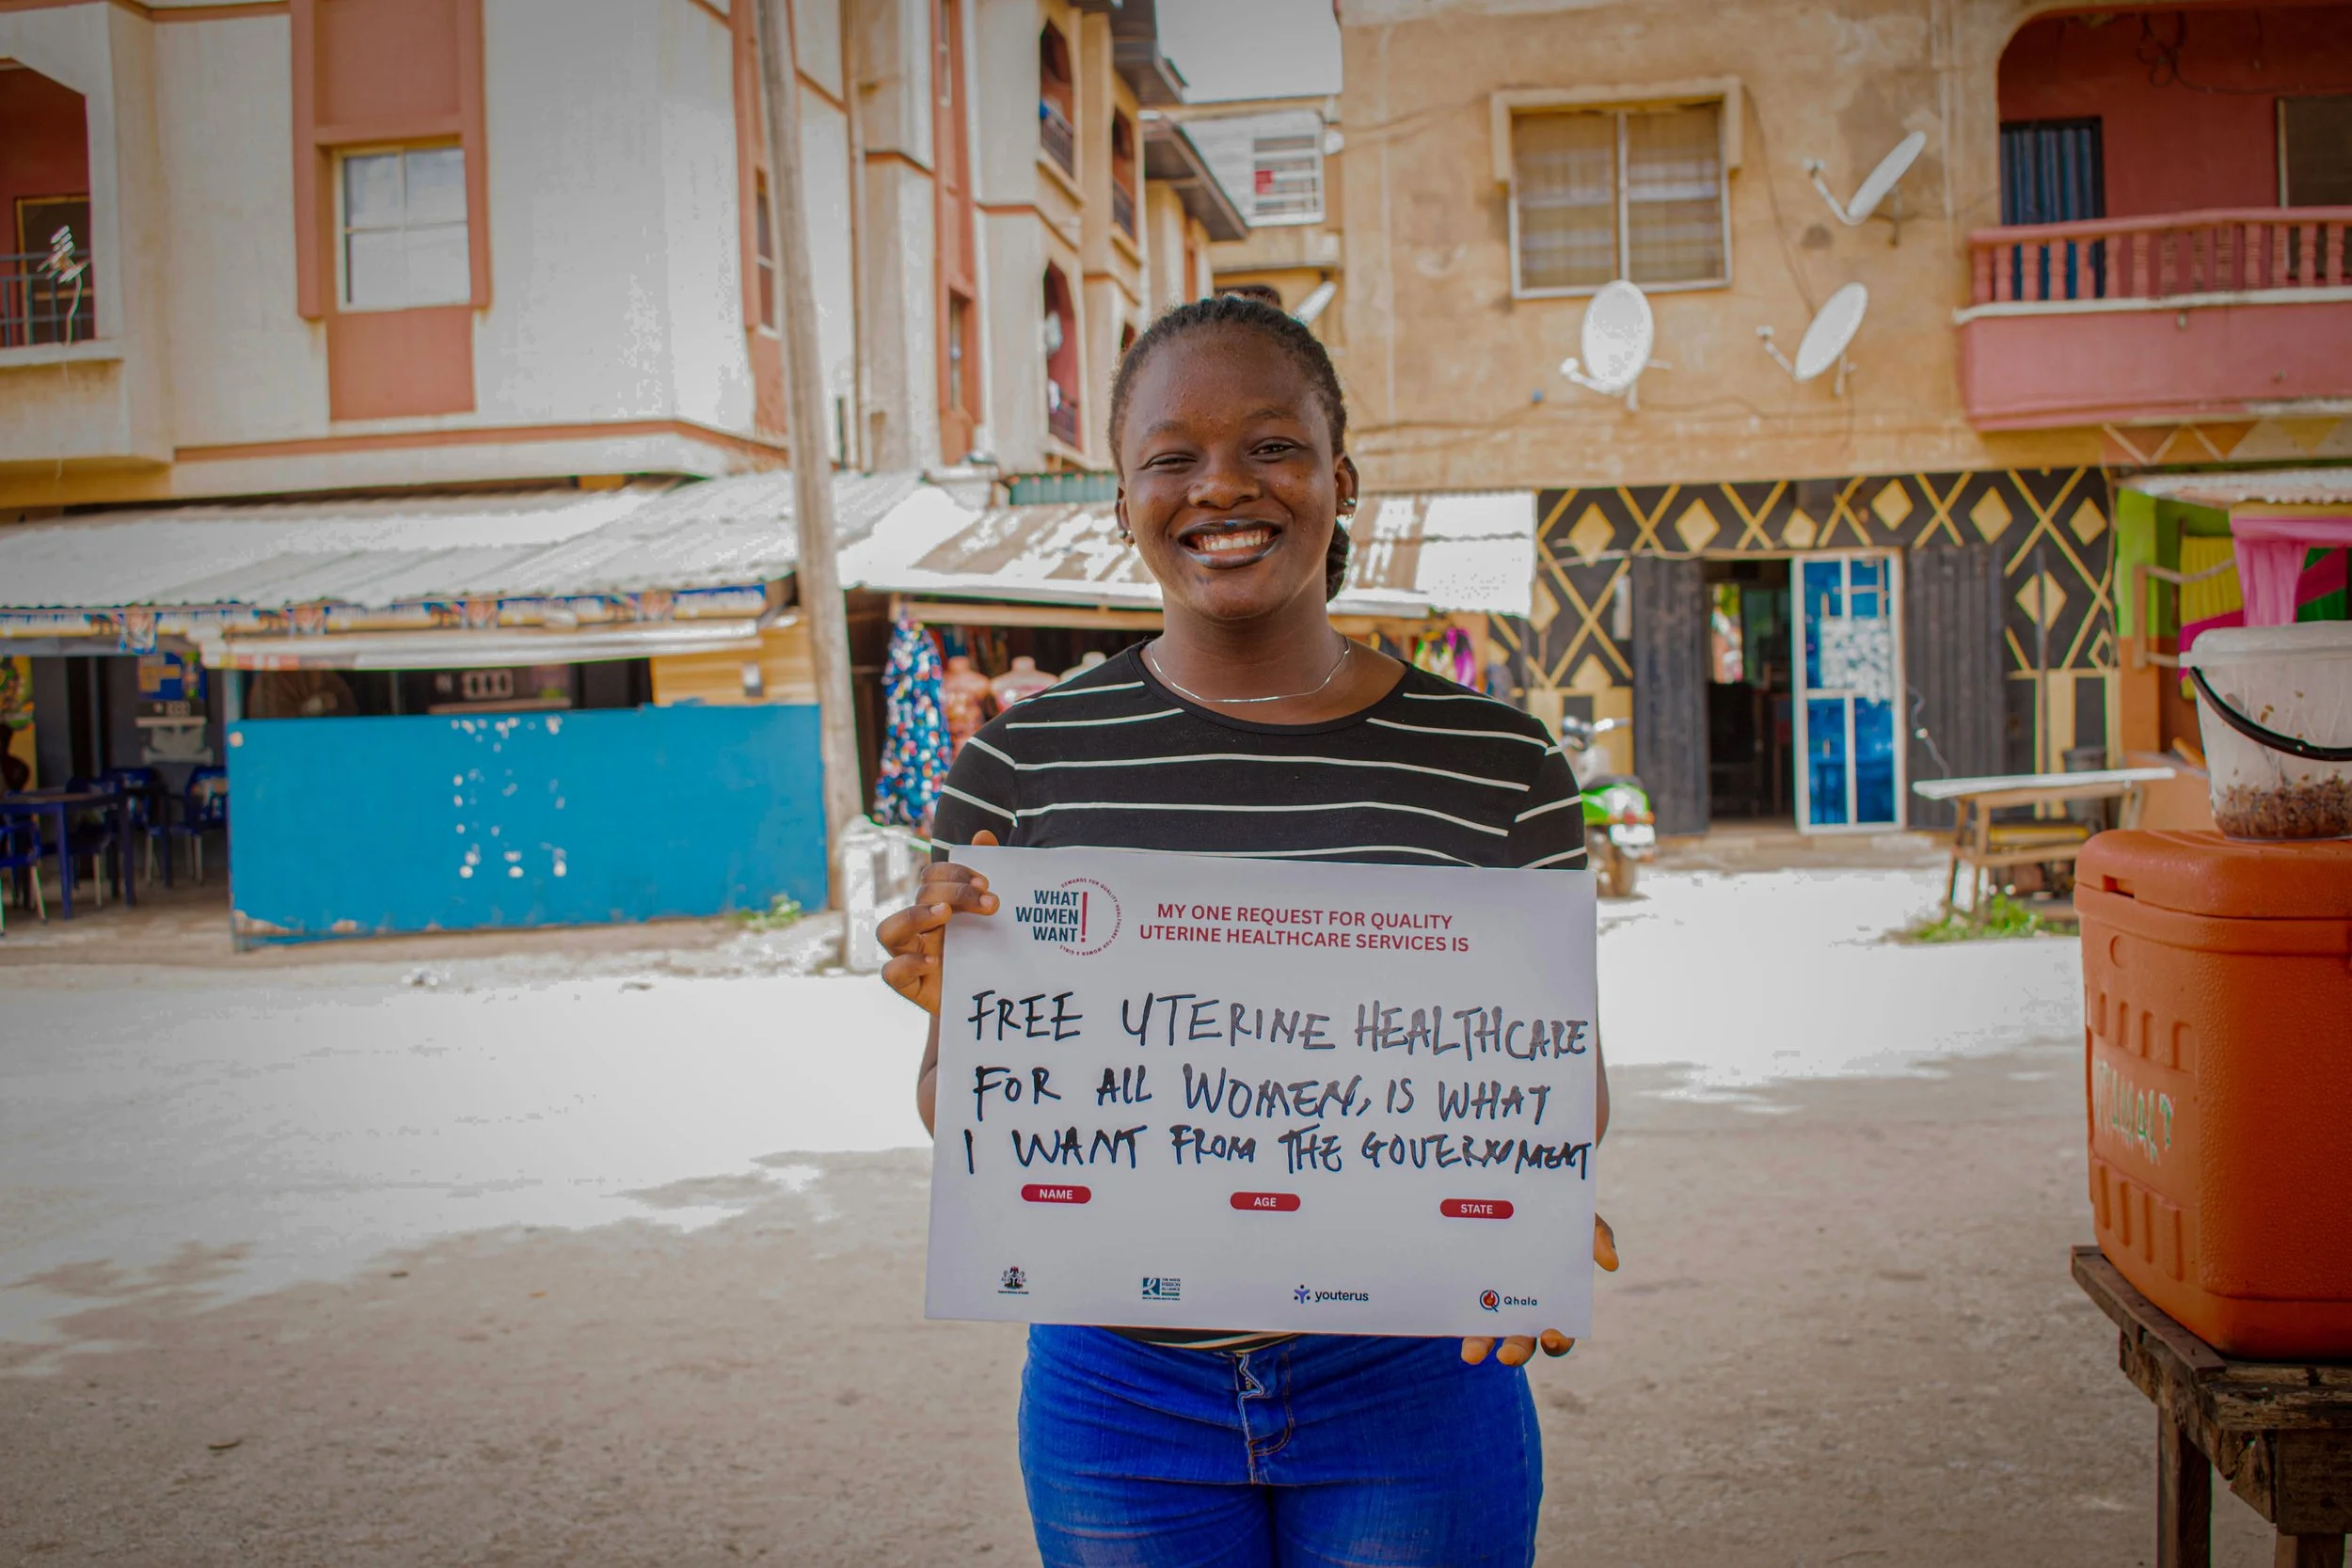 WHAT
WOMEN
WANT!
DEMANDS FOR QUALITY HEALTHCARE FOR WOMEN & GIRLS
MY ONE REQUEST FOR QUALITY
UTERINE HEALTHCARE SERVICES IS
FREE UTERINE HEALTHCARE
FOR ALL WOMEN, IS WHAT
I WANT FROM THE GOVERNMENT
NAME
AGE
STATE
youterus
Qhala